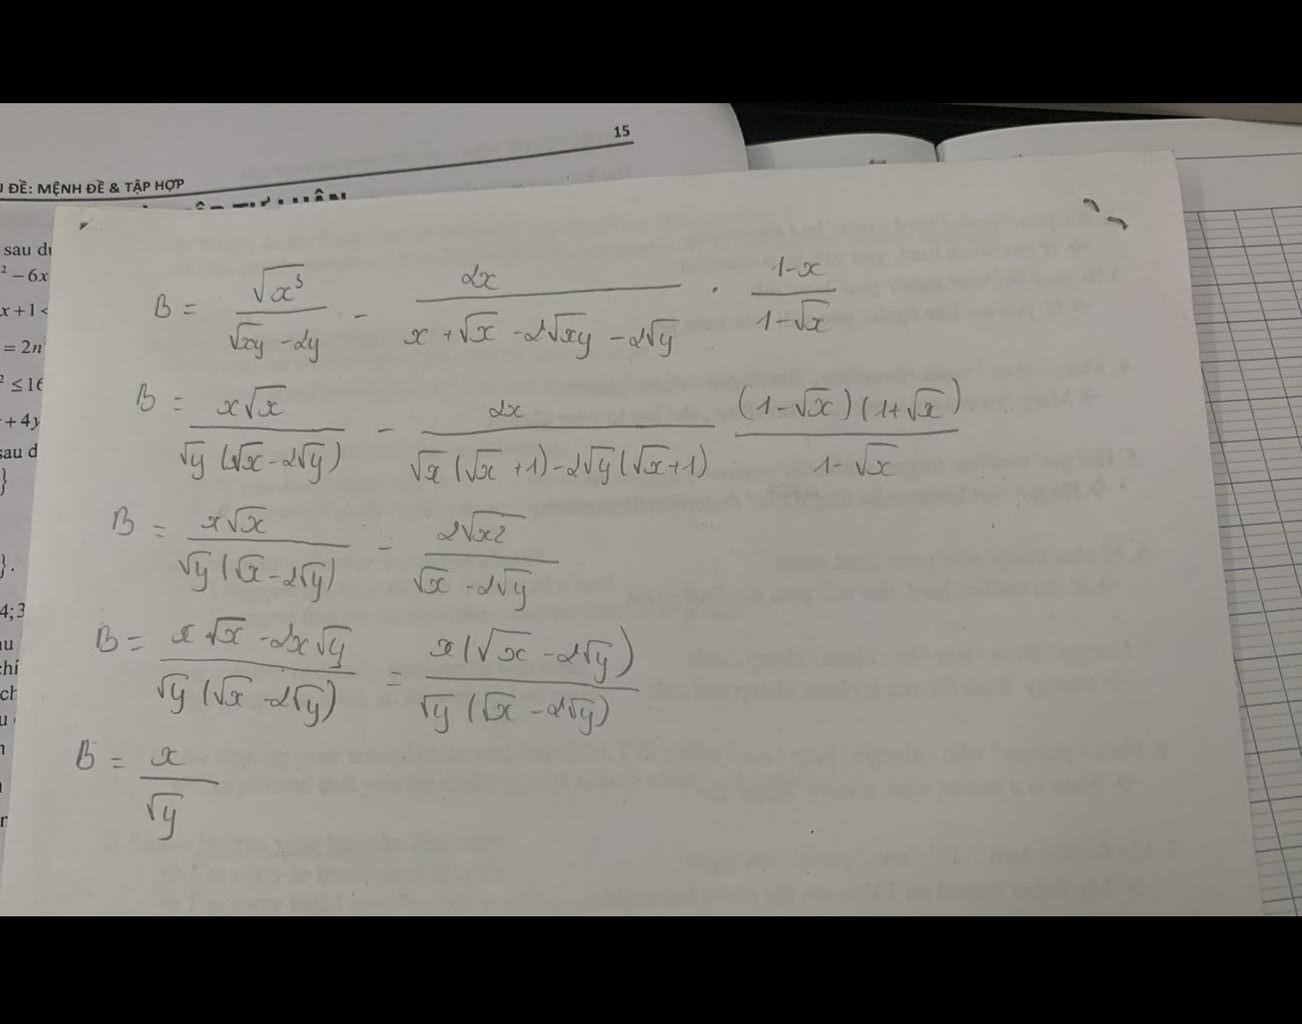 15
ĐỀ: MỆNH ĐỀ & TẬP HỢP
sau
² − 6x
x + 1 <
= 2n
² ≤ 16
+ 4y
sau d
}
}.
4; 3
B = \frac{\sqrt{x^3}}{\sqrt{xy} - 2y} - \frac{2x}{x + \sqrt{x} - 2\sqrt{xy} - 2\sqrt{y}} . \frac{1-x}{1-\sqrt{x}}
B = \frac{x\sqrt{x}}{\sqrt{y}(\sqrt{x} - 2\sqrt{y})} - \frac{2x}{\sqrt{x}(\sqrt{x}+1) - 2\sqrt{y}(\sqrt{x}+1)} \frac{(1-\sqrt{x})(1+\sqrt{x})}{1-\sqrt{x}}
B = \frac{x\sqrt{x}}{\sqrt{y}(\sqrt{x} - 2\sqrt{y})} - \frac{2\sqrt{x2}}{\sqrt{x} - 2\sqrt{y}}
B = \frac{x\sqrt{x} - 2x\sqrt{y}}{\sqrt{y}(\sqrt{x} - 2\sqrt{y})} = \frac{x(\sqrt{x} - 2\sqrt{y})}{\sqrt{y}(\sqrt{x} - 2\sqrt{y})}
B = \frac{x}{\sqrt{y}}